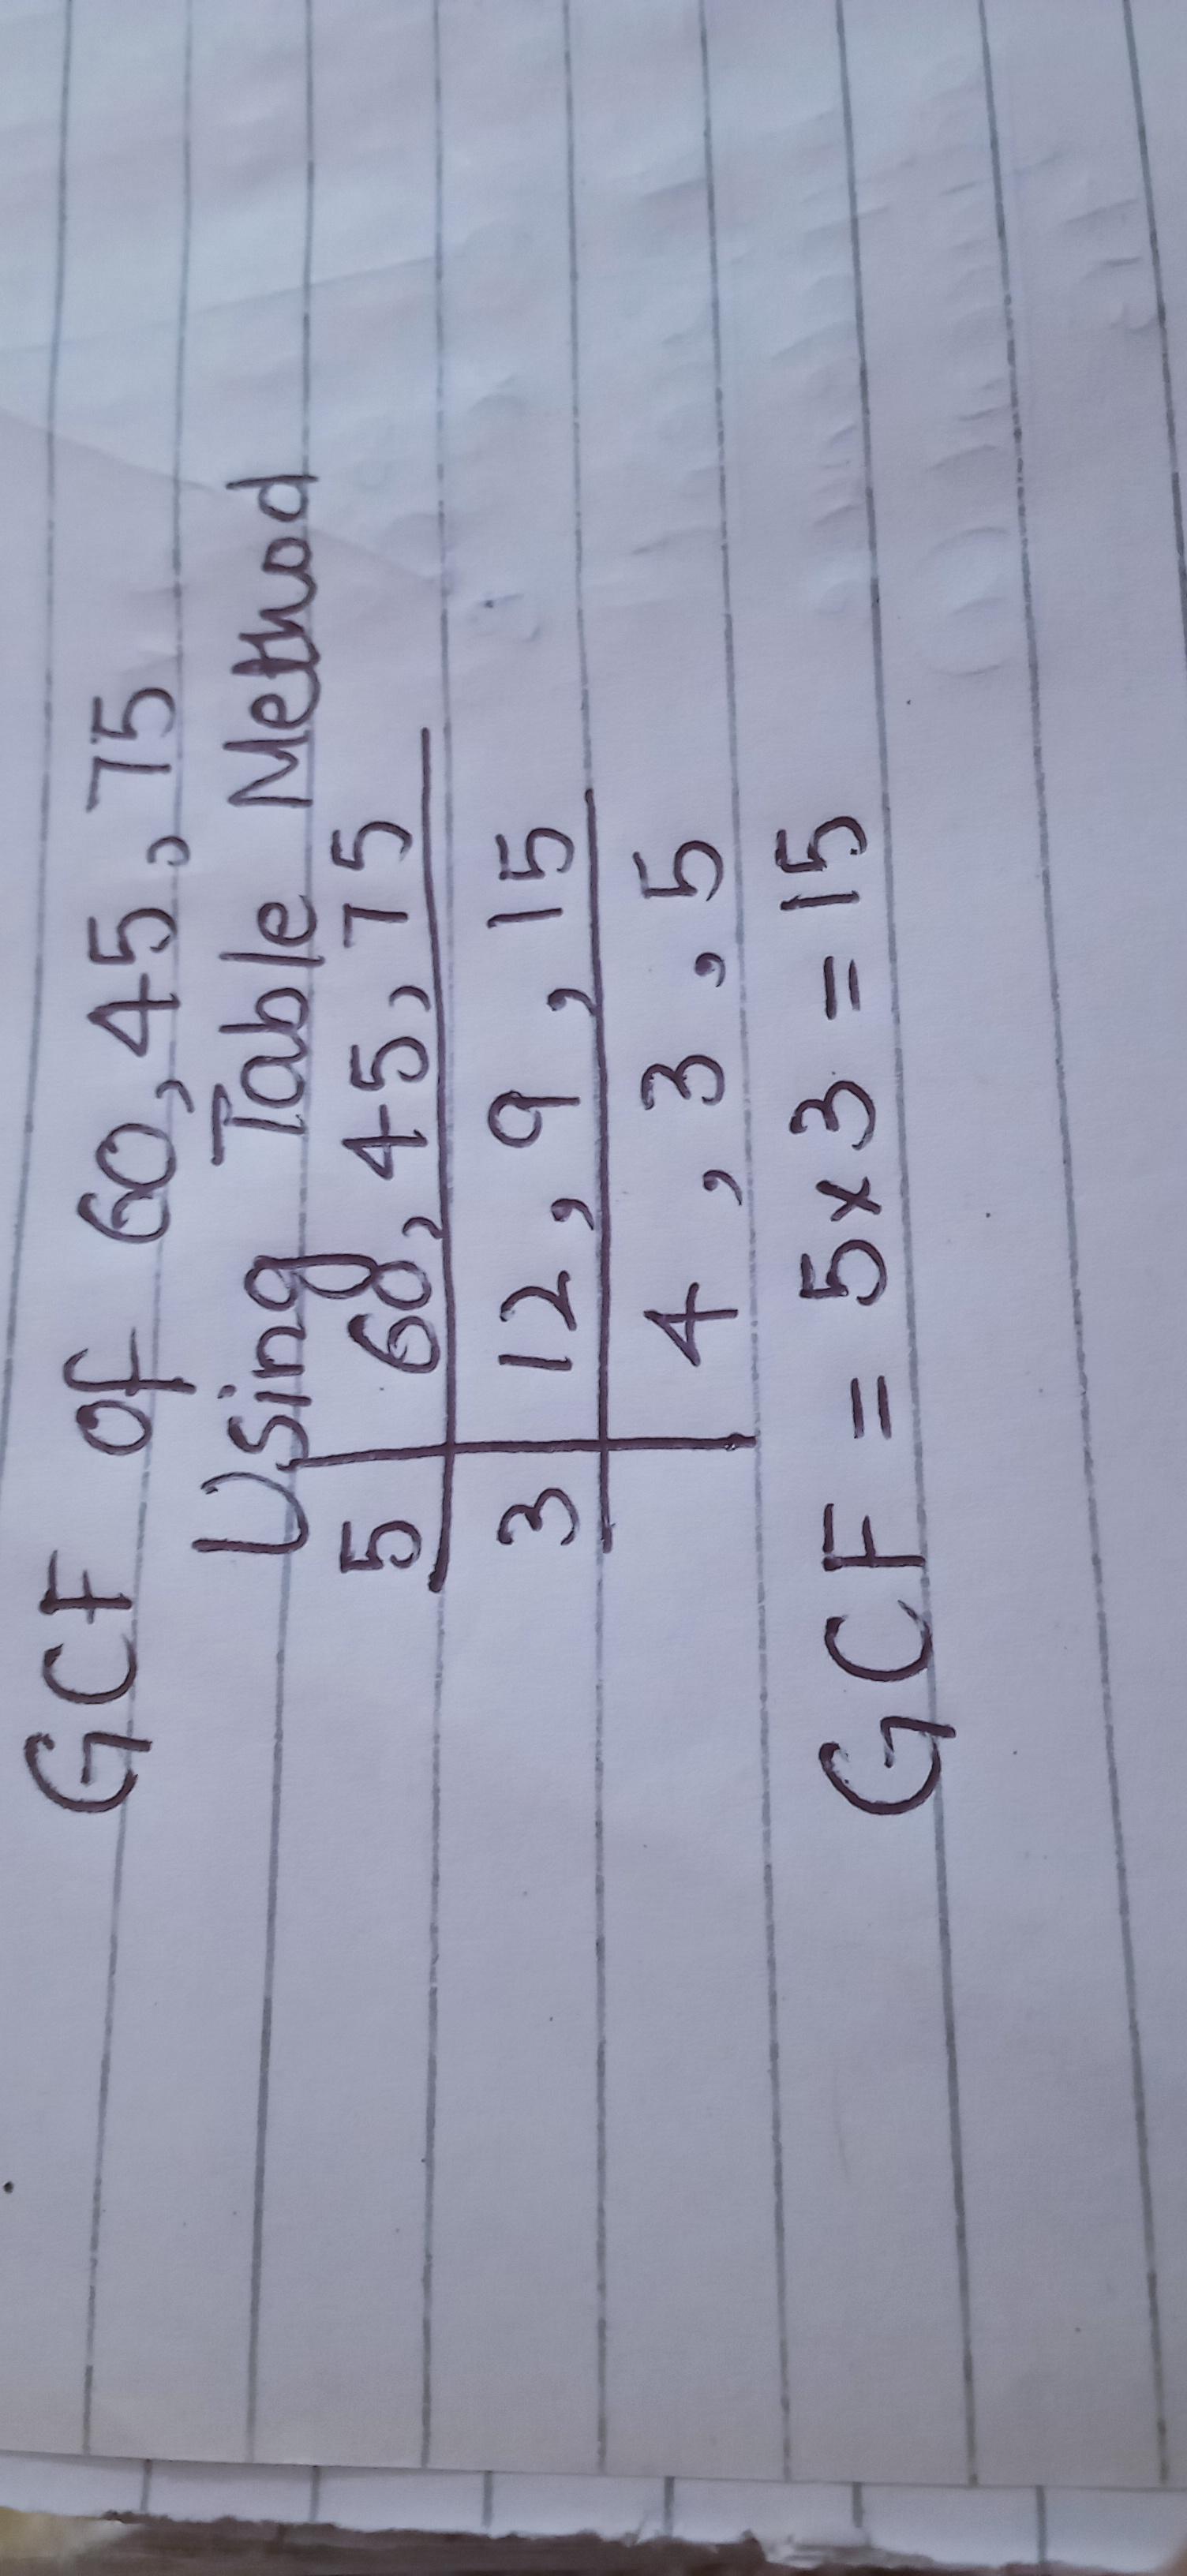 GCF of 60, 45, 75
Using Table Method
5 60, 45, 75
3 12, 9, 15
4, 3, 5
GCF = 5×3 = 15